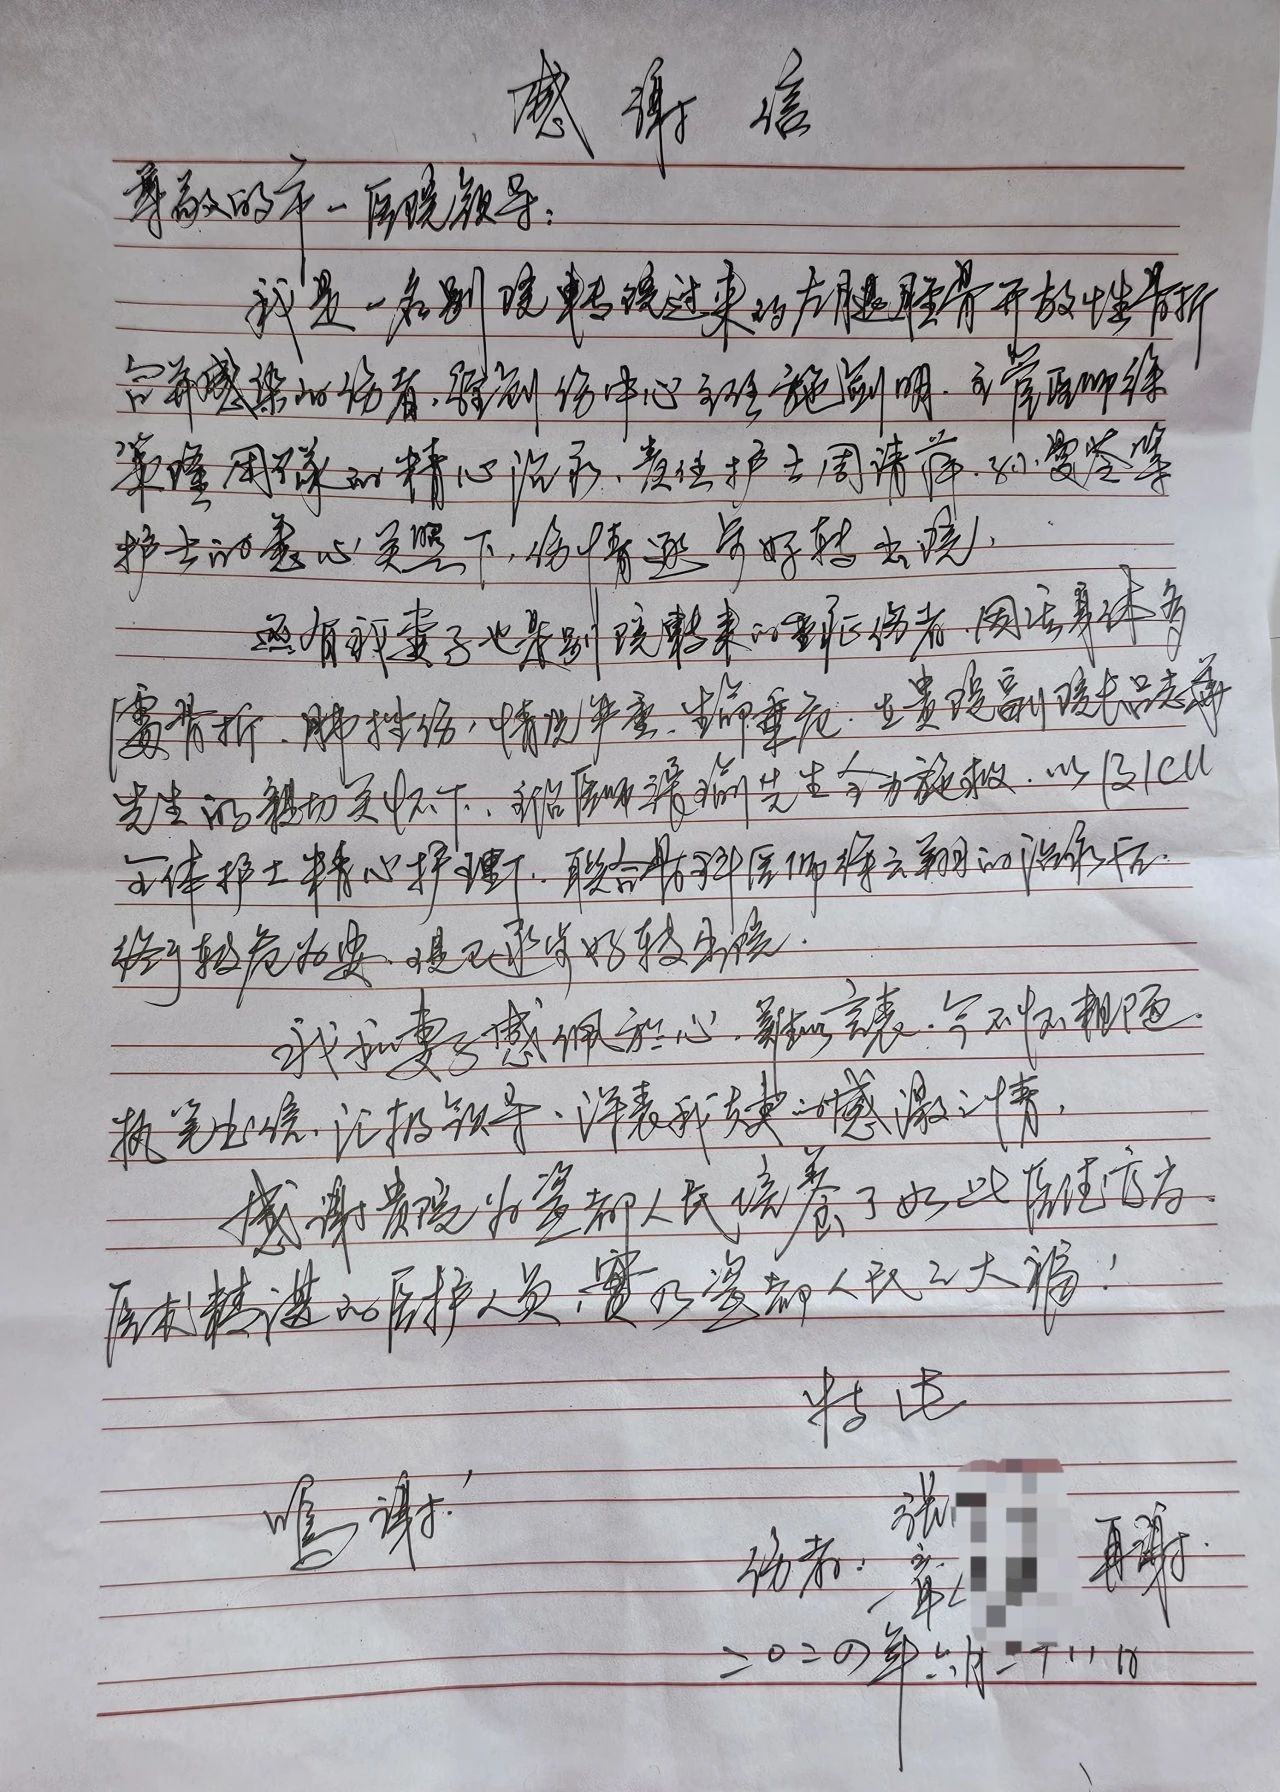 感谢信
尊敬的市一医院领导：
我是一名别院转院过来的左腿胫骨开放性骨折
合并感染的伤者，经创伤中心主任施剑明、主管医师徐
策隆团队的精心治疗、责任护士周请萍、等
护士的悉心关照下，伤情逐步好转出院，
还有我妻子也是别院转来的重症伤者，因浑身体多
处骨折、肺挫伤，情况严重，生命垂危，在贵院副院长吕志华
先生的亲切关怀下，主治医师先生全力施救，以及ICU
全体护士精心护理下，联合骨科医师徐云翔的治疗后，
终于转危为安，现已逐步好转出院.
我和妻子感佩於心，难以言表，今不怀粗陋，
执笔出信，汇报领导，详表我夫妻的感激之情，
感谢贵院为瓷都人民培养了如此医德高尚、
医术精湛的医护人员，实乃瓷都人民之大福！
特此
鸣谢！
伤者：张 再谢.
章
二〇二四年六月二十八日